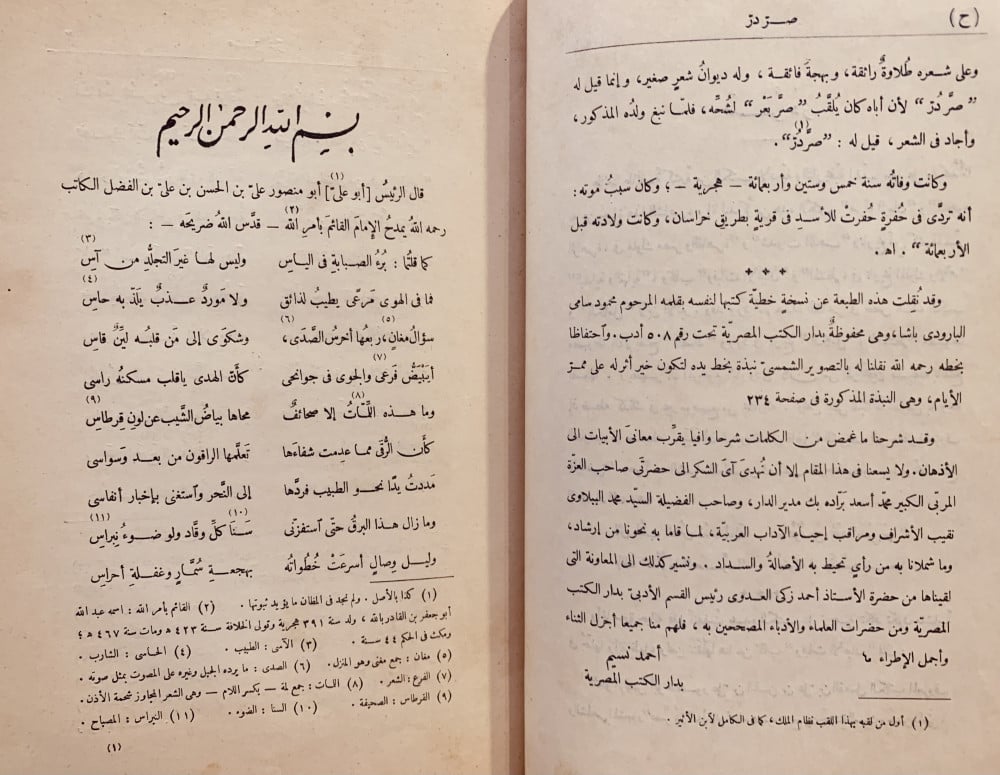 (ح)
صـــر دز
وعلى شعره طُلاوةٌ رائقة، وبهجةٌ فائقة، وله ديوانُ شعرٍ صغير، وإنما قيل له
”صرَّ دُرّ“ لأن أباه كان يُلقَّبُ ”صرَّ بَعْر“ لشُحِّه، فلمّا نبغ ولدُه المذكور،
وأجاد فى الشعر، قيل له : ”صرَّدُرّ“(١).
وكانت وفاتُه سنة خمس وستين وأربعمائة — هجرية —؛ وكان سببُ موته:
أنه تردَّى فى حُفرةٍ حُفرتْ للأسدِ فى قريةٍ بطريق خراسان، وكانت ولادته قبل
الأربعمائة“. اهـ.
وقد نُقِلت هذه الطبعة عن نسخةٍ خطيّة كتبها لنفسه بقلمه المرحوم محمود سامى
البارودى باشا، وهى محفوظةٌ بدار الكتب المصريّة تحت رقم ٥٠٨ أدب. واحتفاظا
بخطه رحمه الله نقلنا له بالتصوير الشمسىّ نبذة بخط يده لتكون خير أثر له على ممرّ
الأيام، وهى النبذة المذكورة فى صفحة ٢٣٤
وقــد شرحنا ما غمض من الكلمات شرحا وافيا يقرِّب معانىَ الأبيات الى
الأذهان. ولا يسعنا فى هذا المقام إلا أن نُهدِىَ آىَ الشكر الى حضرتَى صاحب العزّة
المربّى الكبير محمّد أسعد برّاده بك مدير الدار، وصاحب الفضيلة السيّد محمّد الببلاوى
نقيب الأشراف ومراقب إحياء الآداب العربيّة، لما قاما به نحونا من إرشاد،
وما شملانا به من رأيٍ تحيط به الأصالةُ والسداد. ونشير كذلك الى المعاونة التى
لقيناها من حضرة الأستاذ أحمد زكى العدوى رئيس القسم الأدبىّ بدار الكتب
المصريّة ومن حضرات العلماء والأدباء المصححين به، فلهم منا جميعا أجزل الثناء
وأجمل الإطراء
أحمد نسيم
بدار الكتب المصرية
(١) أول من لقبه بهذا اللقب نظام الملك، كما فى الكامل لابن الأثير.
بسم الله الرحمن الرحيم
قال الرئيسُ [أبو علىّ](١) أبو منصور علىّ بن الحسن بن علىّ بن الفضل الكاتب
رحمه اللهُ يمدحُ الإمامَ القائمَ بأمرِ الله(٢) — قدّس اللهُ ضريحَه — :
كما قلتُما : بُرْءُ الصبابةِ فى الياسِ وليس لها غيرَ التجلّدِ من آسِ(٣)
فما فى الهوى مَرعًى يطيبُ لذائقٍ ولا مَوردٌ عــذبٌ يَلَذّ به حاسِ(٤)
سؤالُ مغانٍ(٥)، ربعُها أخرسُ الصَّدَى(٦)، وشكوَى إلى مَن قلبُه لَيِّنٌ قاسِ
أيَبْيَضُّ فَرعى(٧) والجوى فى جوانحى كأنّ الهدى ياقلب مسكنُه راسى
وما هــذه اللِّمّاتُ(٨) إلا صحائفٌ محاها بياضُ الشَّيبِ عن لونِ قرطاسِ(٩)
كأن الرُّقَى مما عدِمتُ شفاءَها تَعلَّمها الراقون من بعــد وَسواسى
مَددتُ يدًا نحــو الطبيب فردَّها إلى النَّحرِ واستغنى بإخبار أنفاسى
وما زال هــذا البرقُ حتّى استفزّنى سَنَا(١٠) كلِّ وقَّادٍ ولو ضــوءُ نِبراسِ(١١)
وليــلِ وِصالٍ أسرعَتْ خُطُواتُه بهجعــةِ سُمَّارٍ وغفــلة أحراسِ
(١) كذا بالأصل. ولم نجد فى المظان ما يؤيد ثبوتها. (٢) القائم بأمر الله : اسمه عبد الله
أبو جعفر بن القادر بالله، ولد سنة ٣٩١ هجرية وتولى الخلافة سنة ٤٢٣ ﻫ ومات سنة ٤٦٧ ﻫ؛
ومكث فى الحكم ٤٤ سنة. (٣) الآسى : الطبيب. (٤) الحاسى : الشارب.
(٥) مغان : جمع مغنى وهو المنزل. (٦) الصدى : ما يرده الجبل وغيره على المصوت بمثل صوته.
(٧) الفرع : الشعر. (٨) اللمات : جمع لمة — بكسر اللام — وهى الشعر المجاوز شحمة الأذن.
(٩) القرطاس : الصحيفة. (١٠) السنا : الضوء. (١١) النبراس : المصباح.
(١)